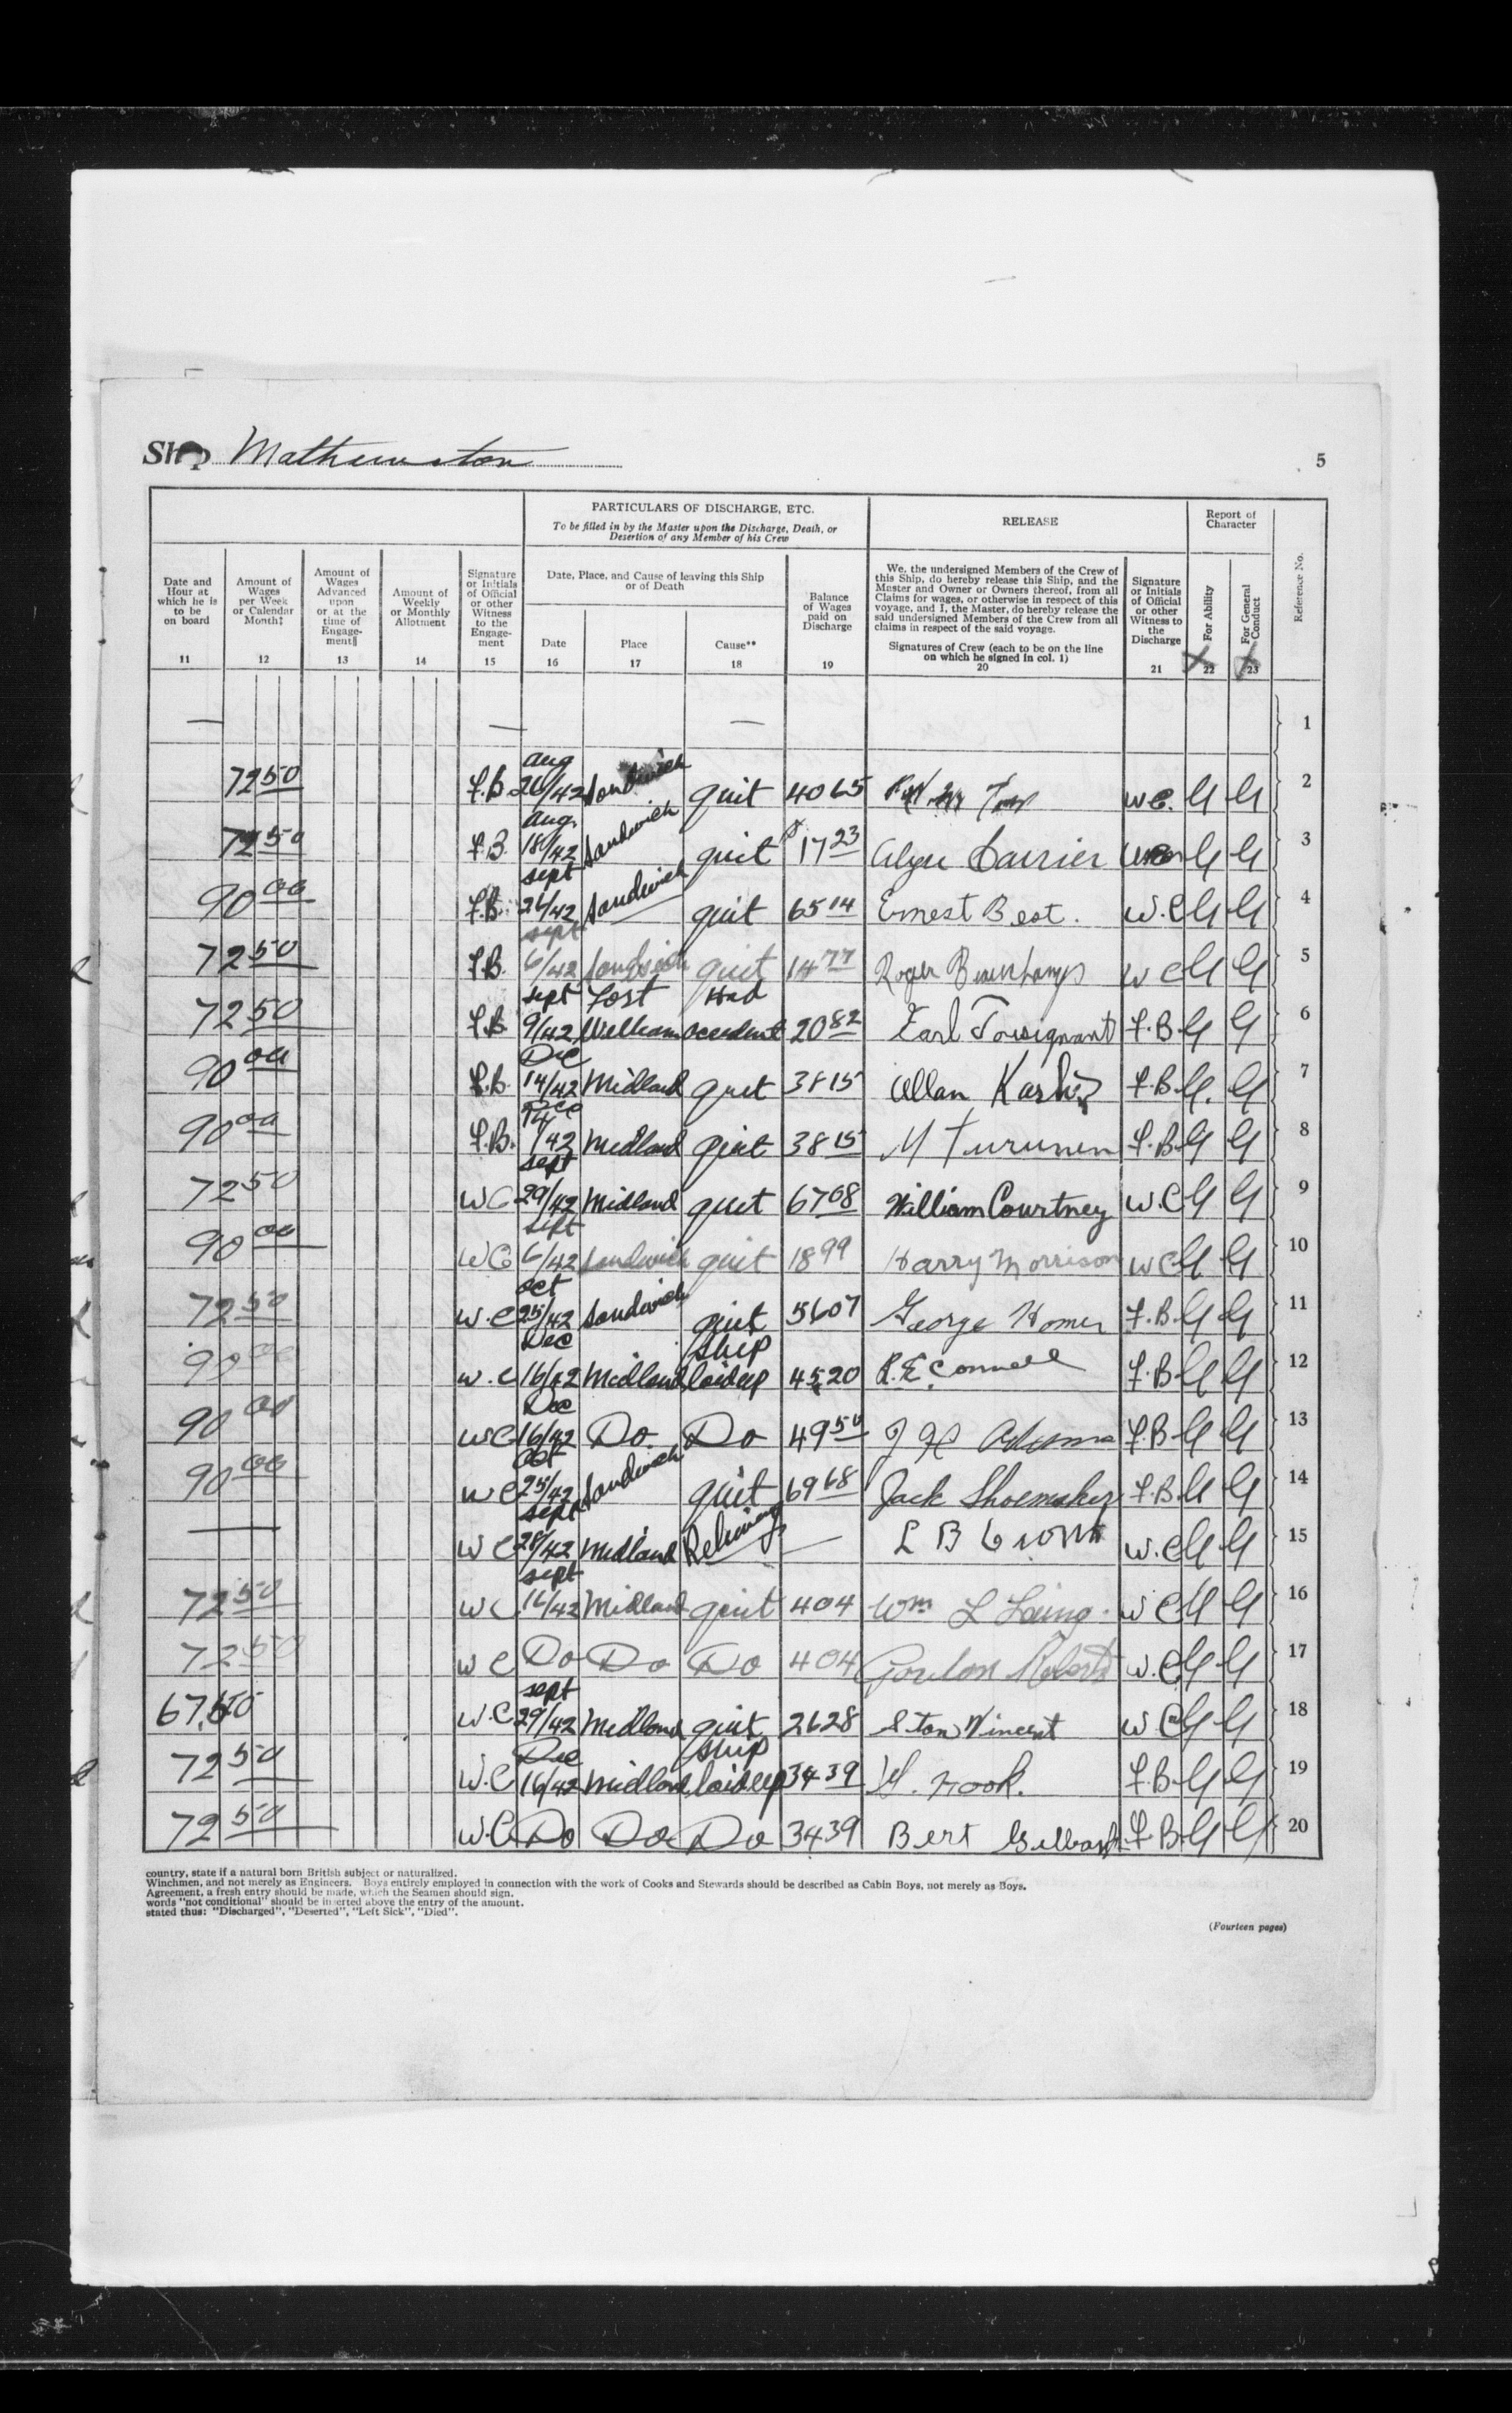 Ship Mathewston
5
PARTICULARS OF DISCHARGE, ETC.
To be filled in by the Master upon the Discharge, Death, or
Desertion of any Member of his Crew
RELEASE
Report of
Character
Date and
Hour at
which he is
to be
on board
11
Amount of
Wages
per Week
or Calendar
Month‡
12
Amount of
Wages
Advanced
upon
or at the
time of
Engage-
ment§
13
Amount of
Weekly
or Monthly
Allotment
14
Signature
or Initials
of Official
or other
Witness
to the
Engage-
ment
15
Date, Place, and Cause of leaving this Ship
or of Death
Date
16
Place
17
Cause**
18
Balance
of Wages
paid on
Discharge
19
We, the undersigned Members of the Crew of
this Ship, do hereby release this Ship, and the
Master and Owner or Owners thereof, from all
Claims for wages, or otherwise in respect of this
voyage, and I, the Master, do hereby release the
said undersigned Members of the Crew from all
claims in respect of the said voyage.
Signatures of Crew (each to be on the line
on which he signed in col. 1)
20
Signature
or Initials
of Official
or other
Witness to
the
Discharge
21
For Ability
X 22
For General
Conduct
X 23
Reference No.
— — — 1
7250 F.B. Aug 26/42 Sandwich quit 4065 W C. G G 2
7250 F.B. Aug. 18/42 Sandwich quit $1723 G G 3
9000 F.B. Sept 26/42 Sandwich quit 6514 Ernest Beot. W.C G G 4
7250 F.B. Sept 6/42 Sandwich quit 1477 Roger Beauchamp W C G G 5
7250 F.B. Sept 9/42 Fort William Had accident 2082 Earl Tousignant F.B G G 6
9000 F.B. Dec 14/42 Midland quit 3815 Allan F.B G. G 7
9000 F.B. Dec 14/42 Midland quit 3815 M Turunen F.B G G 8
7250 WC Sept 29/42 Midland quit 6768 William Courtney W.C G G 9
9000 WC Sept 6/42 Sandwich quit 1899 Harry Morrison WC G G 10
7250 W.C Oct 25/42 Sandwich quit 5607 George Homer F.B G G 11
9000 W.C Dec 16/42 Midland Ship laid up 4520 R.E Connell F.B G G 12
9000 WC Dec 16/42 Do. Do 4950 F.B G G 13
9000 WC Oct 25/42 Sandwich quit 6968 Jack Shoemaker F.B G G 14
— W C Sept 28/42 Midland Relieving — L B W.C G G 15
7250 W C Sept 16/42 Midland quit 404 Wm L Laing. W C G G 16
7250 W C Do Do Do 404 Gordon Roberts W.C G G 17
67.50 W.C Sept 29/42 Midland quit 2628 Stan Vincent W C G G 18
7250 W.C Dec 16/42 Midland Ship laid up 3439 H. Hook. F.B G G 19
7250 W.C Do Do Do 3439 Bert F.B G G 20
country, state if a natural born British subject or naturalized.
Winchmen, and not merely as Engineers. Boys entirely employed in connection with the work of Cooks and Stewards should be described as Cabin Boys, not merely as Boys.
Agreement, a fresh entry should be made, which the Seamen should sign.
words "not conditional" should be inserted above the entry of the amount.
stated thus: "Discharged", "Deserted", "Left Sick", "Died".
(Fourteen pages)